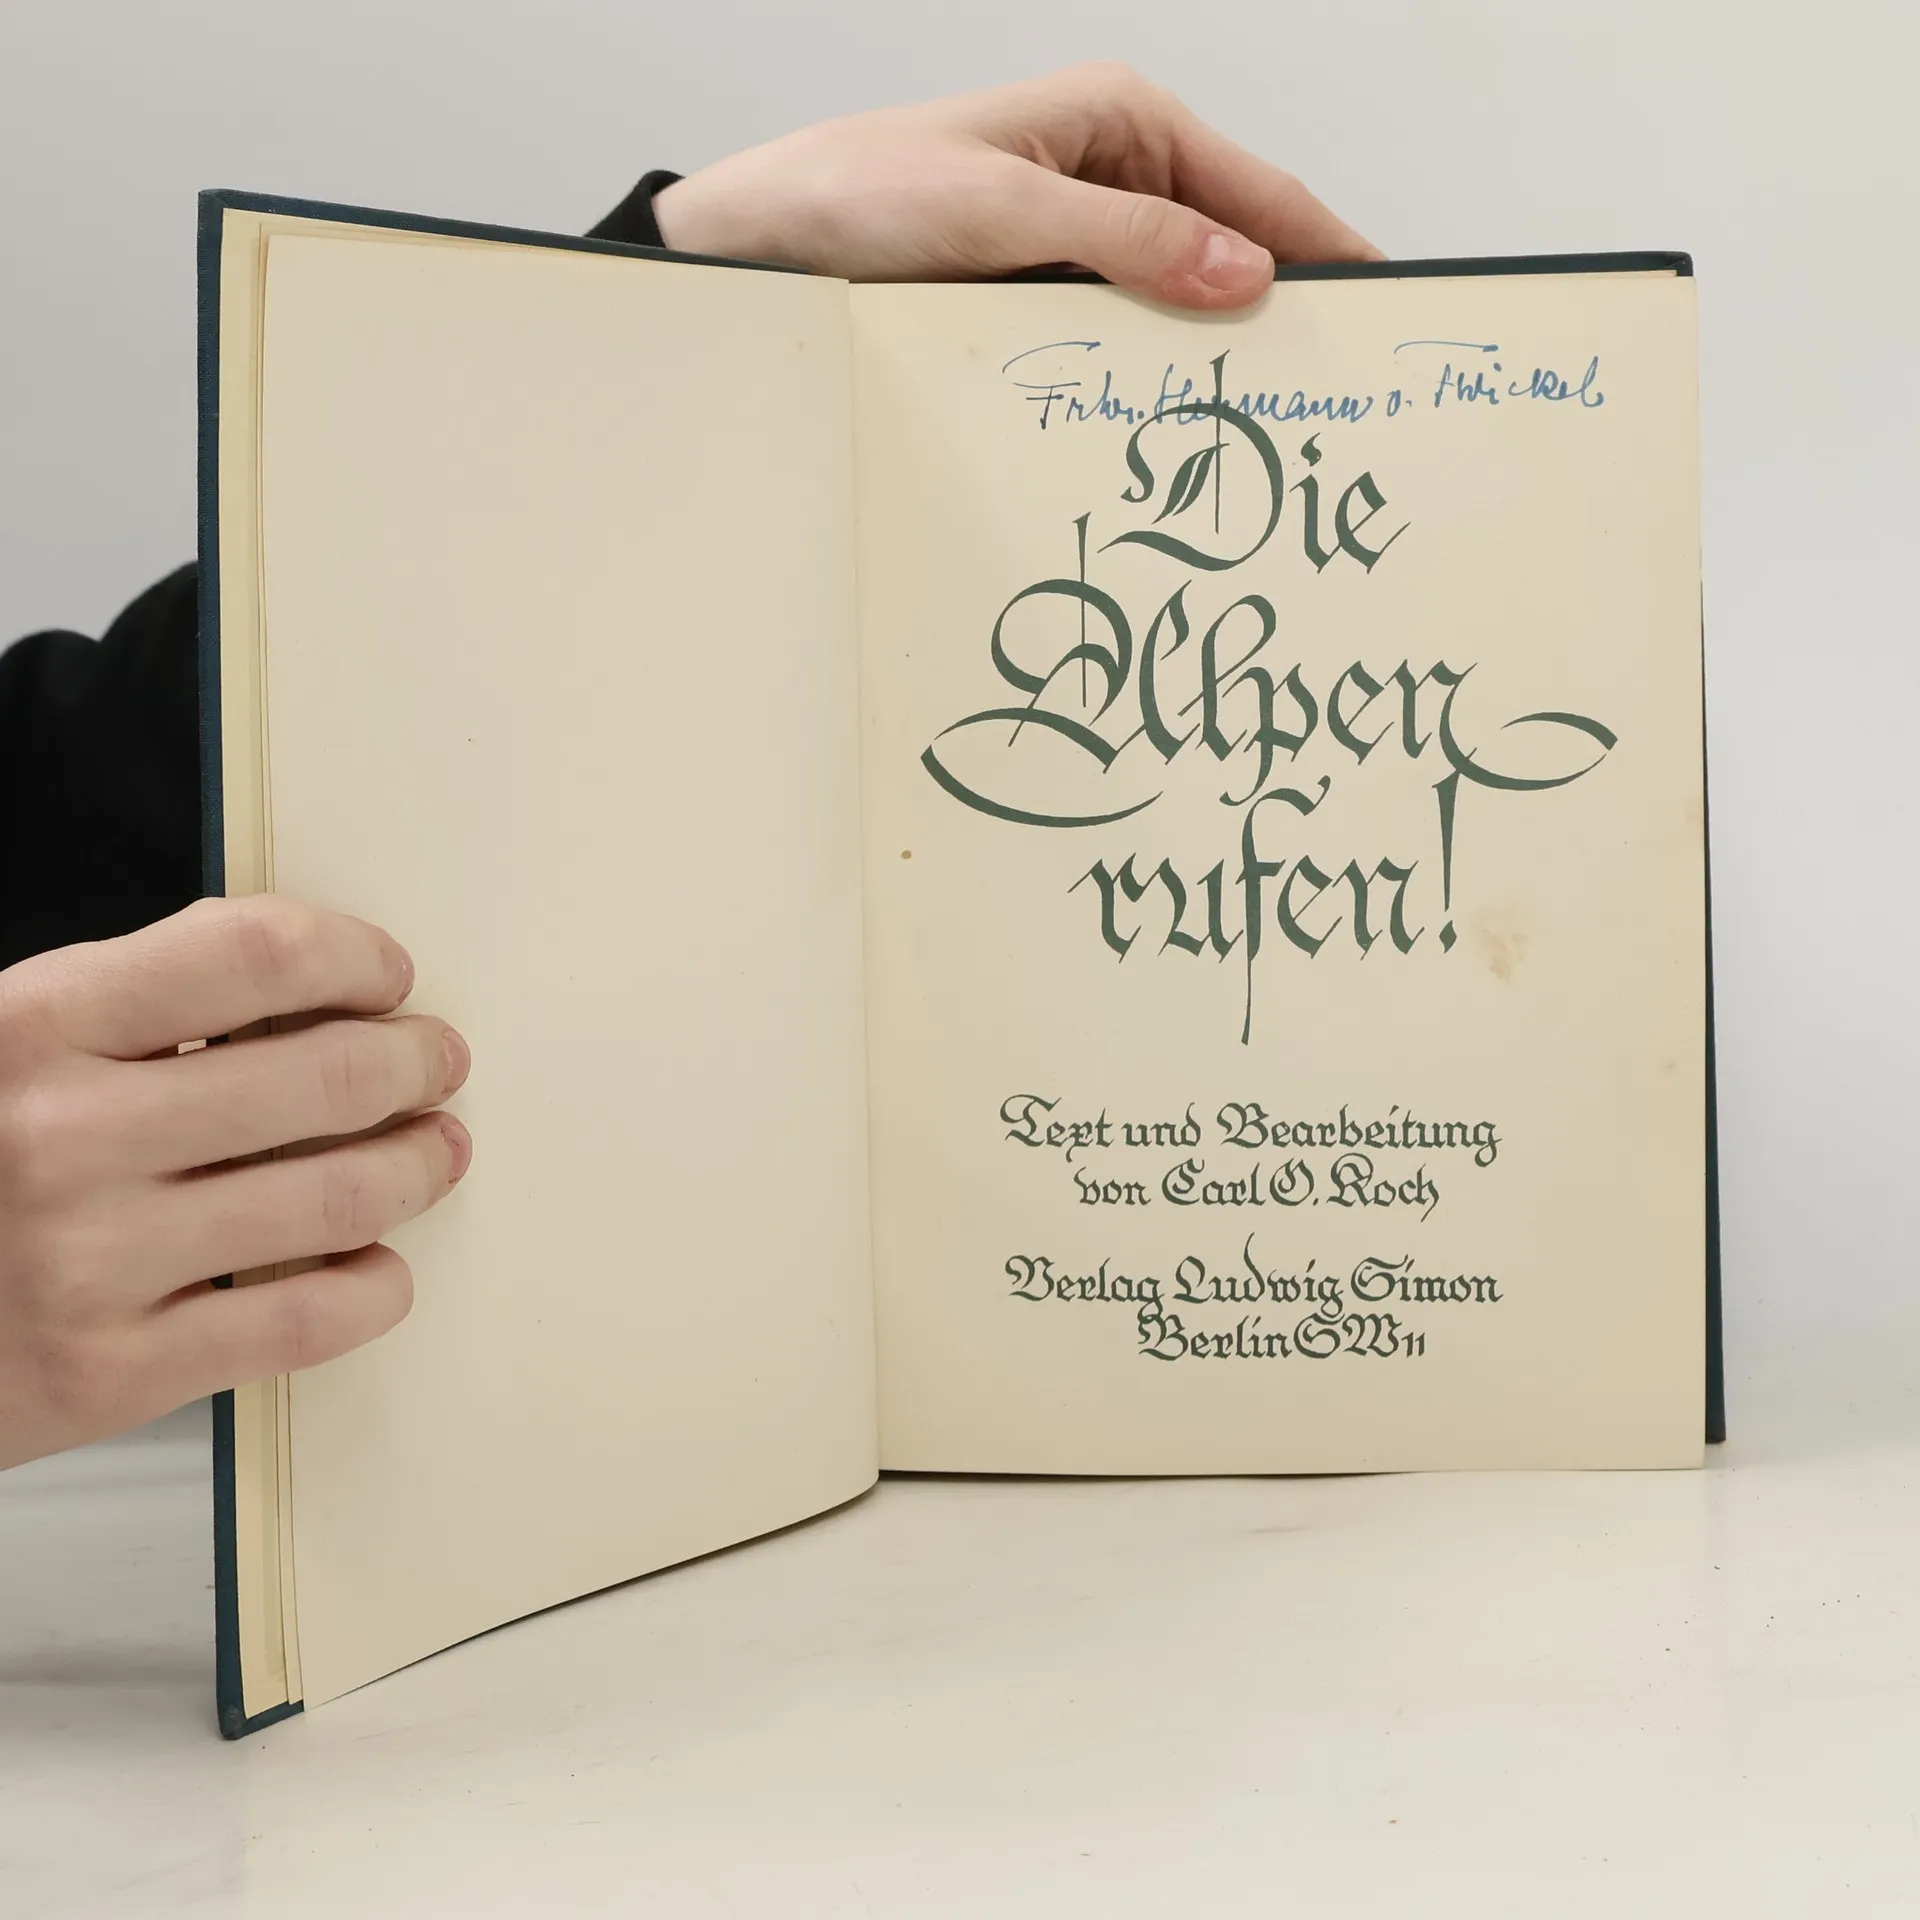 Frhr. Hermann v. Twickel
Die
Alpen
rufen!
Text und Bearbeitung
von Carl O. Koch
Verlag Ludwig Simon
Berlin SW 11